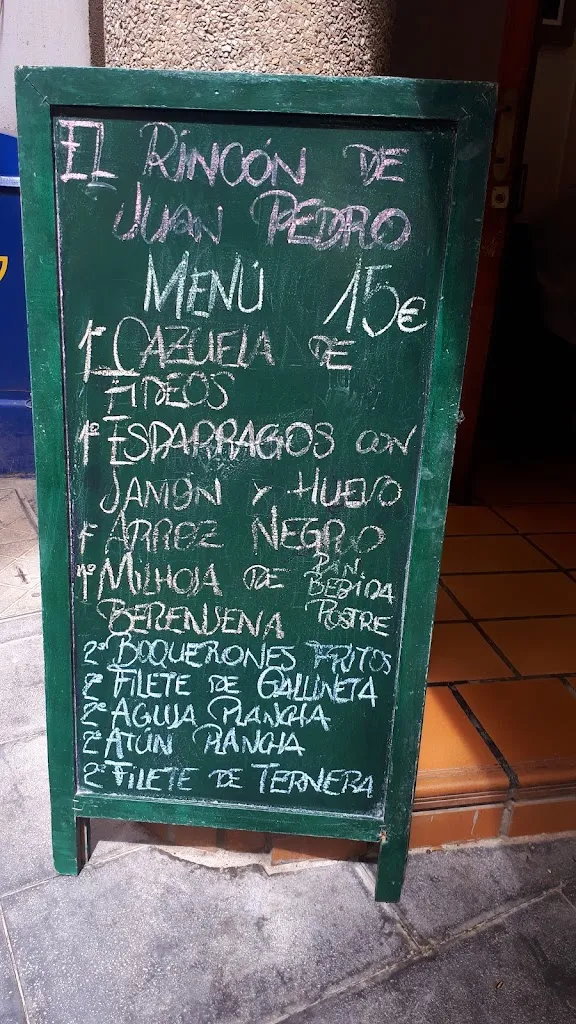 EL RINCÓN DE
JUAN PEDRO
MENÚ 15€
1º CAZUELA DE
FIDEOS
1º ESPARRAGOS CON
JAMÓN Y HUEVO
1º ARROZ NEGRO
1º MILHOJA DE
BERENSENA
PAN,
BEBIDA
POSTRE
2º BOQUERONES FRITOS
2º FILETE DE GALLINETA
2º AGUJA PLANCHA
2º ATÚN PLANCHA
2º FILETE DE TERNERA